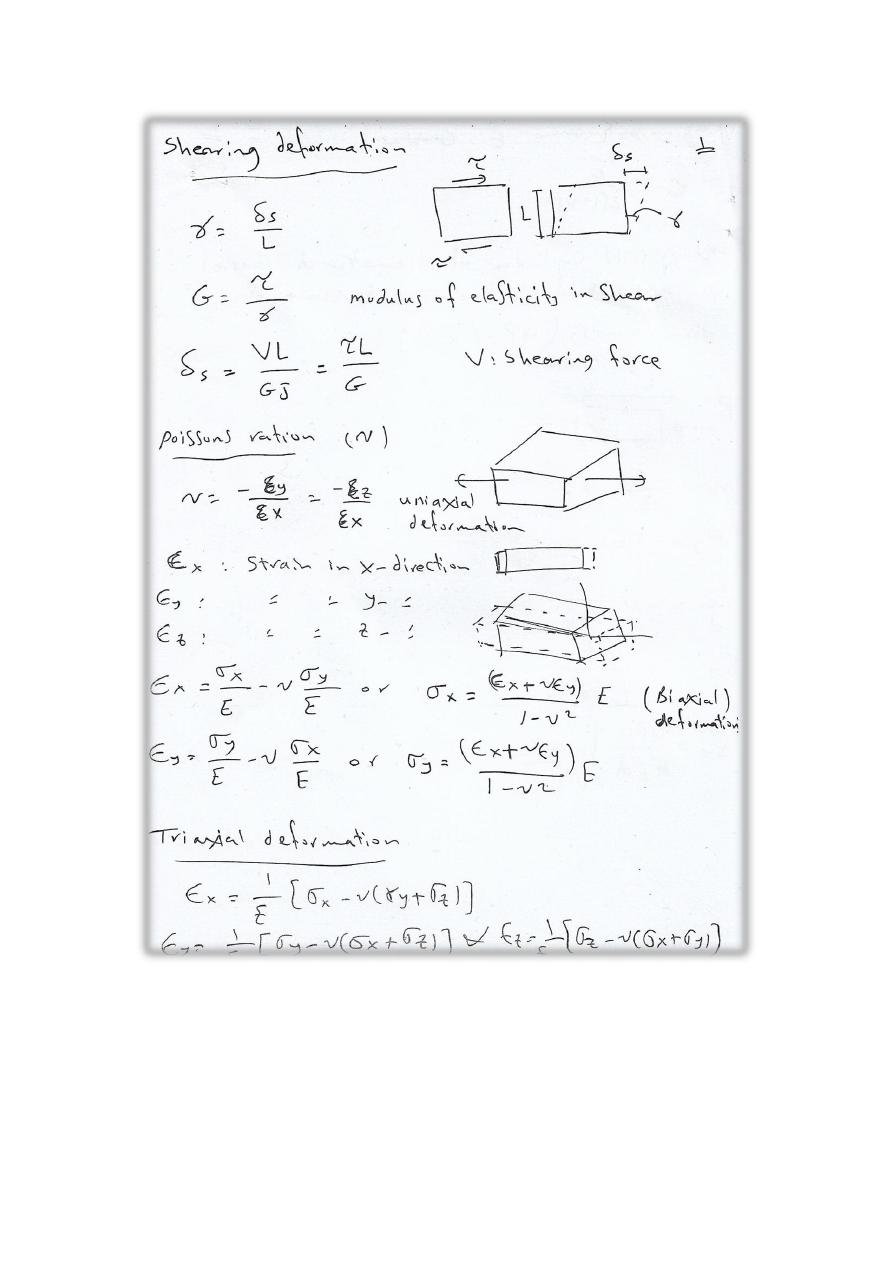 Shearing deformation 1
τ δs
γ = δs / L L γ
τ
G = τ / γ modulus of elasticity in Shear
δs = VL / GJ = τL / G V: Shearing force
poissons ration (ν)
ν = -εy / εx = -εz / εx uniaxial
deformation
εx : Strain in x-direction
εy : = = y- =
εz : = = z- =
εx = σx / E - ν σy / E or σx = (εx + νεy) / 1-ν² E (Biaxial)
deformation
εy = σy / E - ν σx / E or σy = (εx + νεy) / 1-ν² E
Triaxial deformation
εx = 1/E [σx - ν(σy + σz)]
εy = 1/ [σy - ν(σx + σz)] εz = 1/ [σz - ν(σx + σy)]